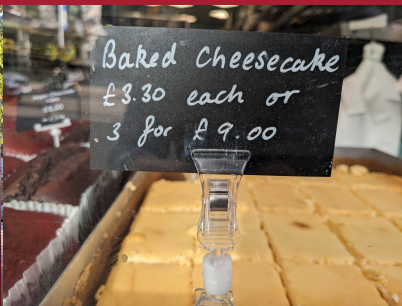 Baked Cheesecake
£3.30 each or
3 for £9.00